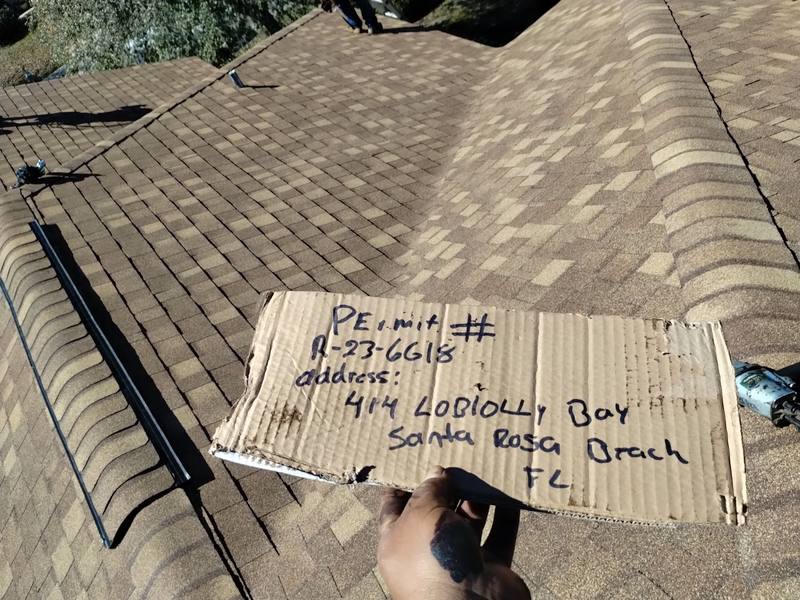 PErmit #
R-23-6618
address:
414 LOBlOLLy Bay
Santa Rosa Breach
FL